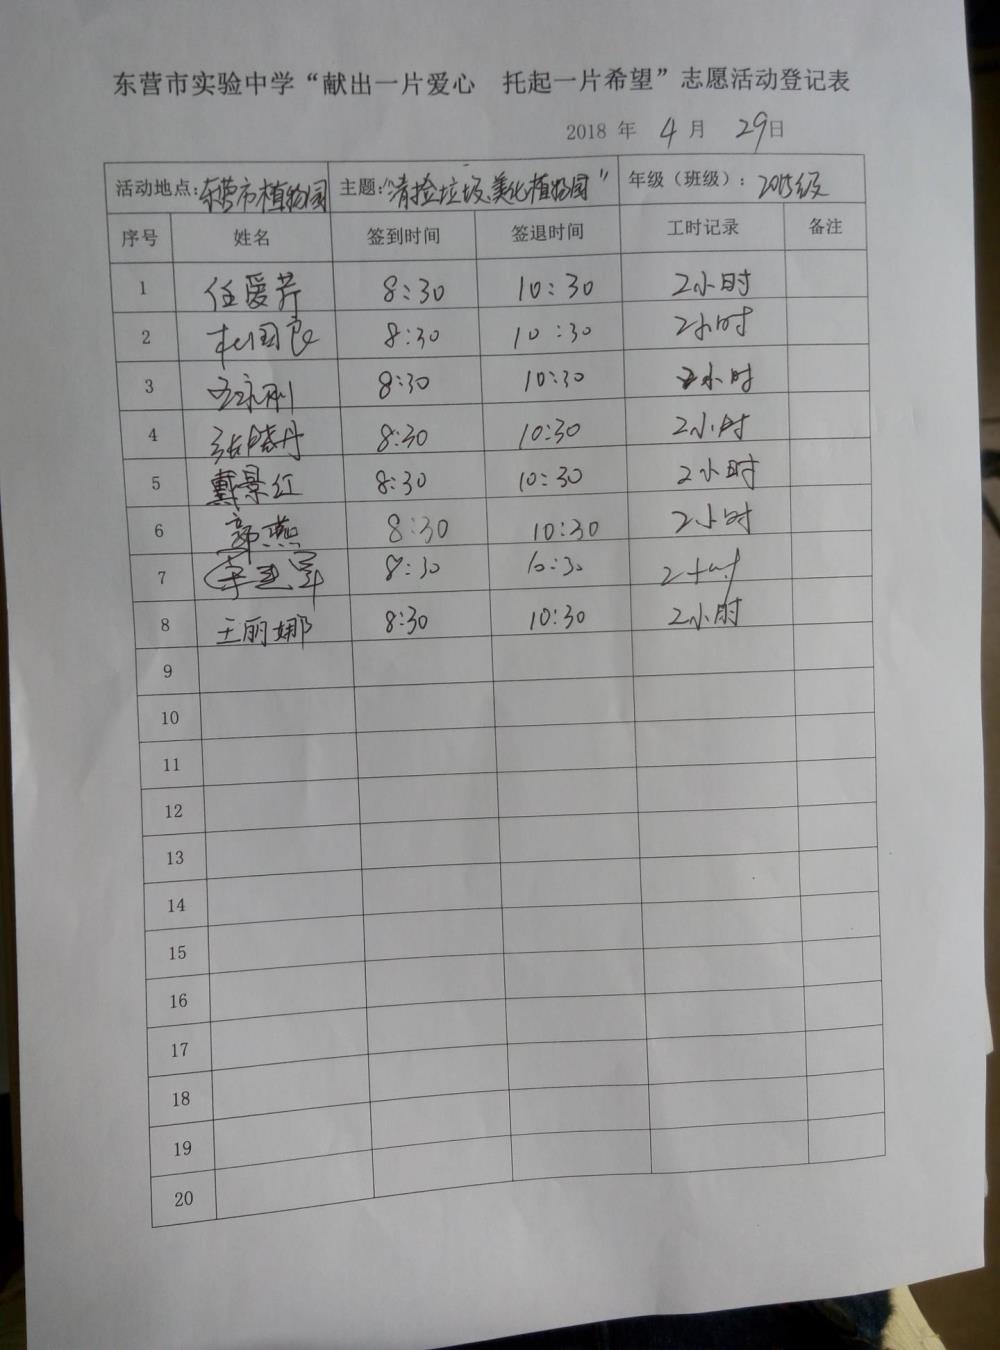 东营市实验中学“献出一片爱心 托起一片希望”志愿活动登记表
2018 年 4 月 29日
活动地点:东营市植物园 主题:“清捡垃圾,美化植物园” 年级（班级）: 2015级
序号 姓名 签到时间 签退时间 工时记录 备注
1 任爱芹 8:30 10:30 2小时
2 杜国良 8:30 10:30 2小时
3 8:30 10:30 2小时
4 张晓丹 8:30 10:30 2小时
5 戴景红 8:30 10:30 2小时
6 郭燕 8:30 10:30 2小时
7 8:30 10:30 2小时
8 王丽娜 8:30 10:30 2小时
9
10
11
12
13
14
15
16
17
18
19
20